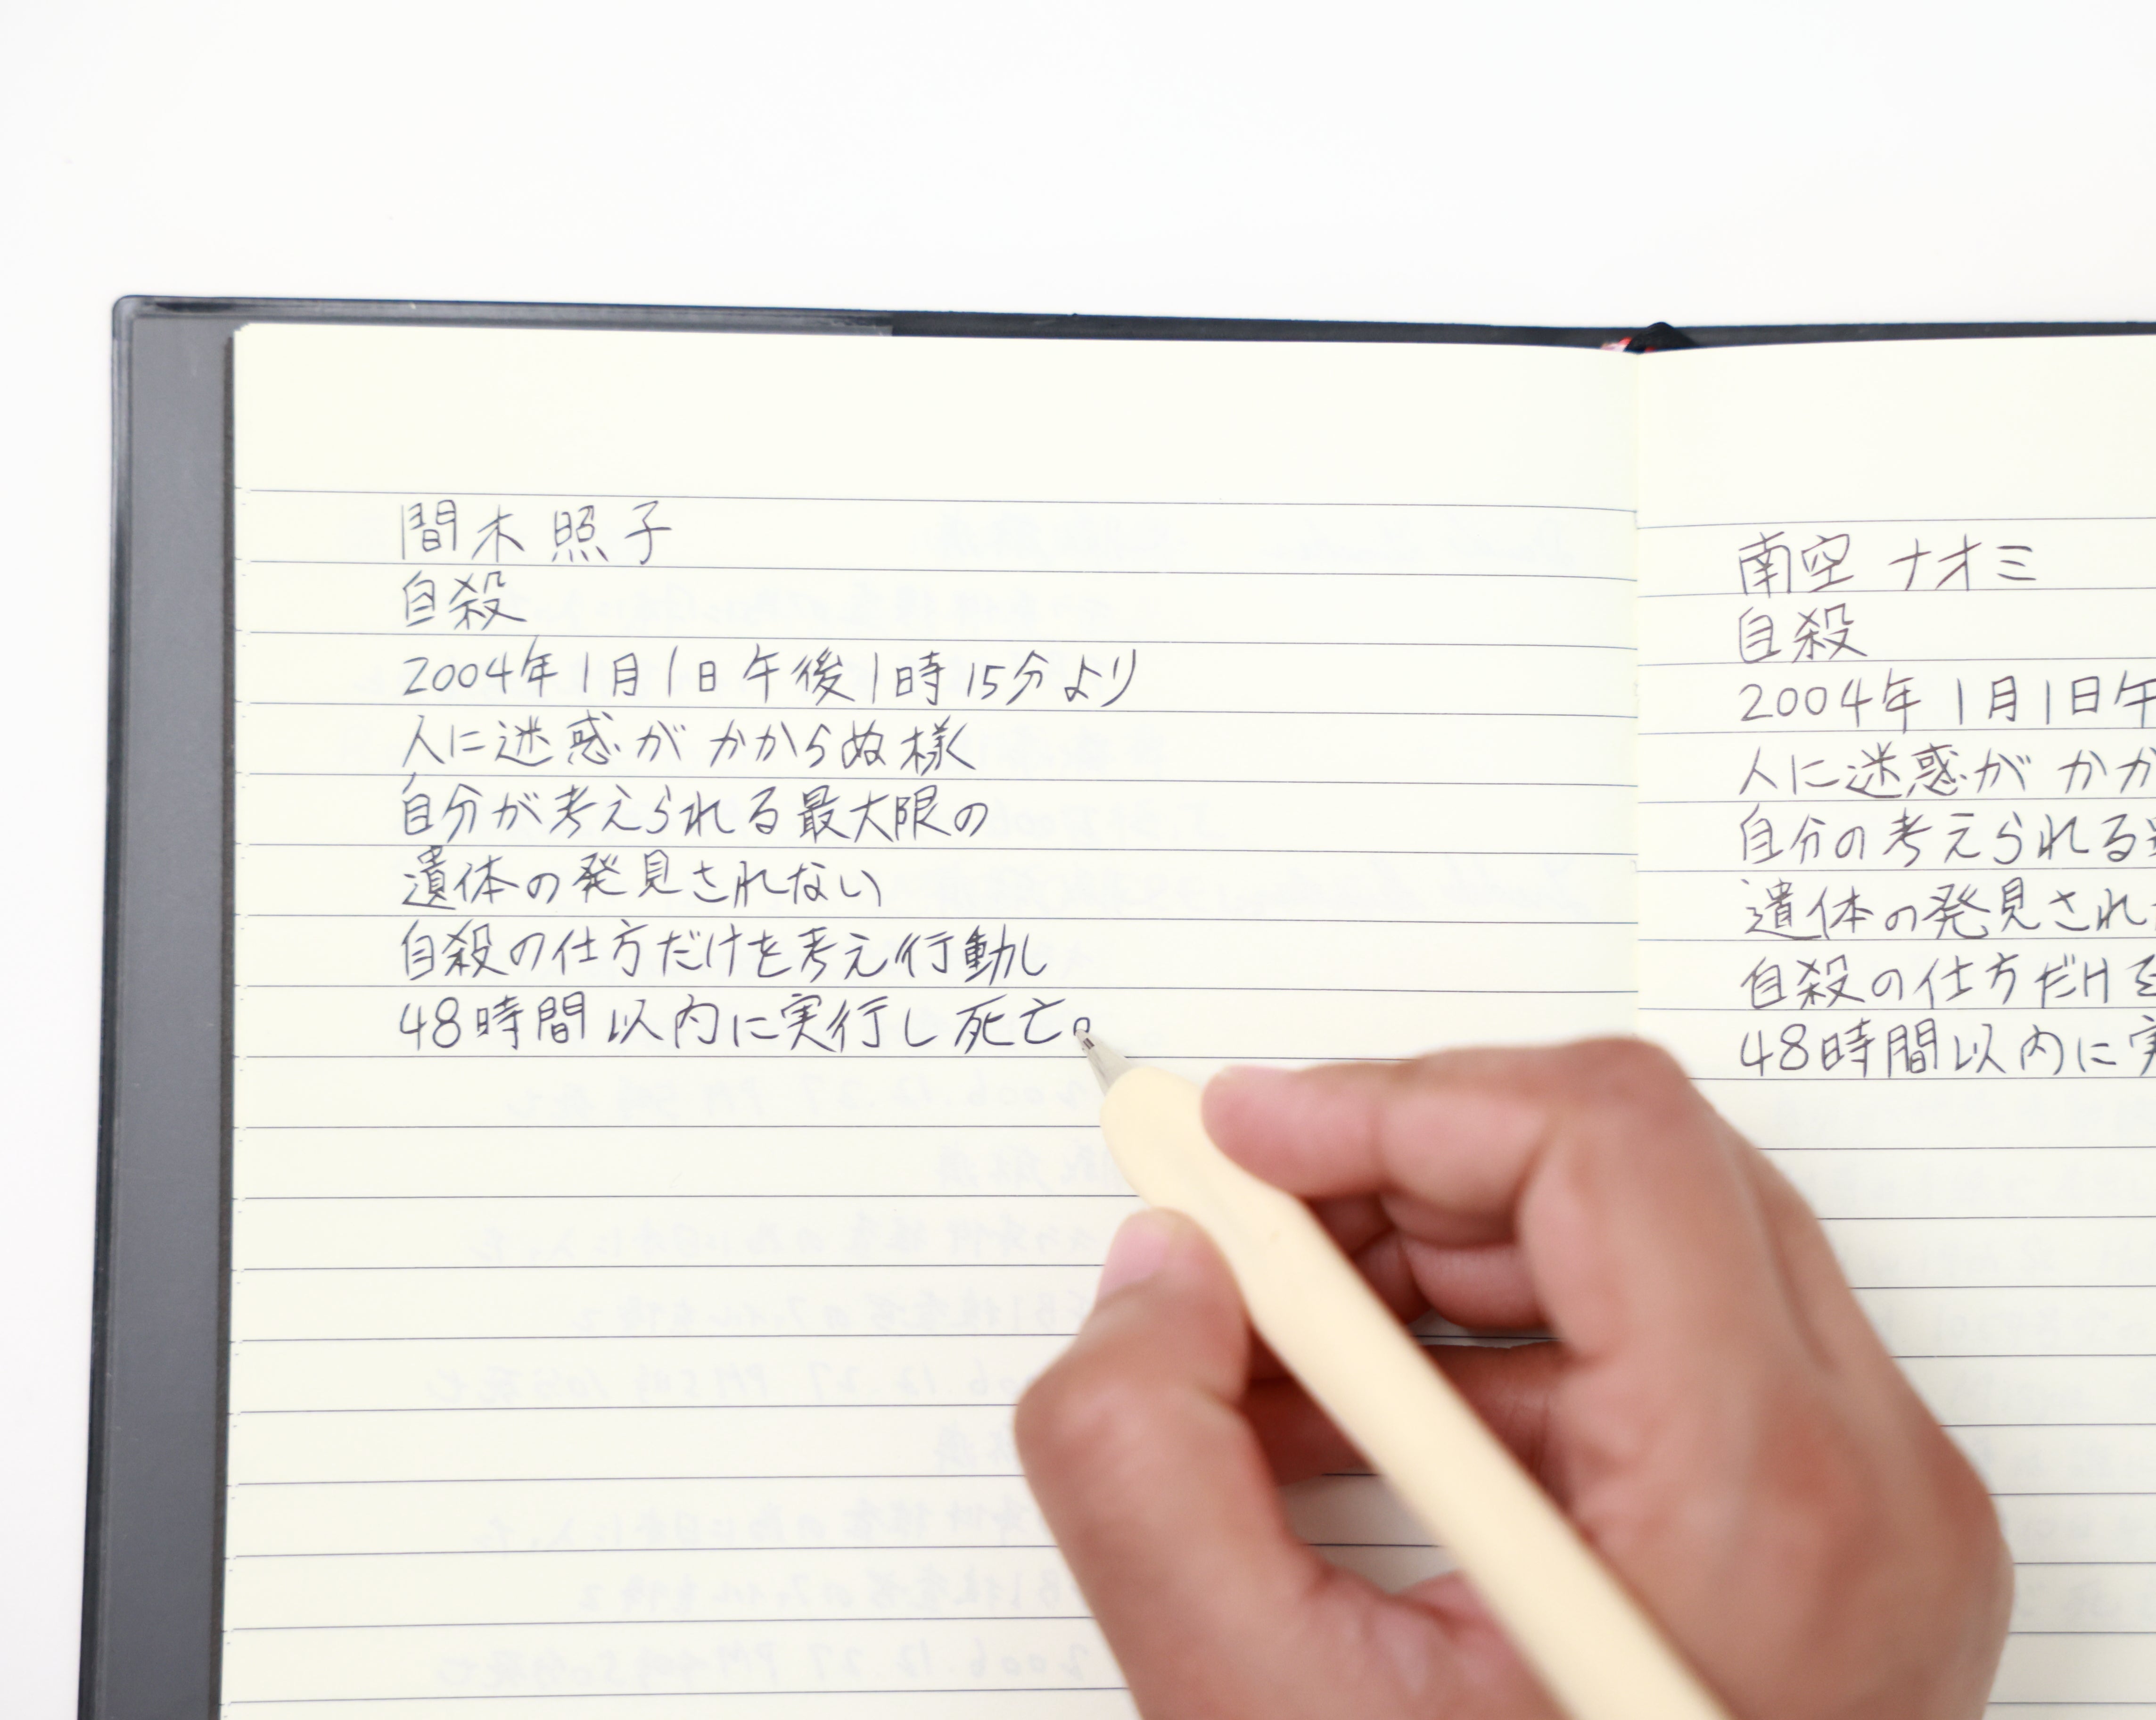 間木照子
自殺
2004年1月1日午後1時15分より
人に迷惑がかからぬ様
自分が考えられる最大限の
遺体の発見されない
自殺の仕方だけを考え行動し
48時間以内に実行し死亡。
南空 ナオミ
自殺
2004年1月1日午
人に迷惑がかか
自分の考えられる
遺体の発見され
自殺の仕方だけを
48時間以内に実